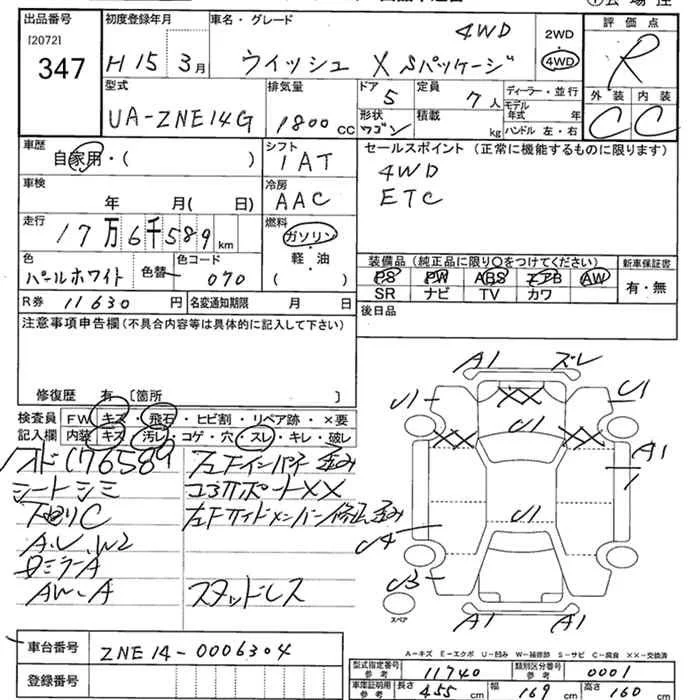 出品番号
[2072]
347
初度登録年月
H15 3月
車名・グレード
4WD
ウイッシュ X Sパッケージ
2WD
4WD
評価点
R
外装 内装
C C
型式
UA-ZNE14G
排気量
1800 CC
ドア
5
形状
ワゴン
定員
7人
積載
kg
ディーラー・並行
モデル年式 年
ハンドル 左・右
車歴
自家用・( )
シフト
1AT
セールスポイント(正常に機能するものに限ります)
4WD
ETC
車検
年 月( 日)
冷房
AAC
走行
17万6千589km
燃料
ガソリン・
軽・油
( )
色
パールホワイト
色替
色コード
070
装備品(純正品に限り○をつけてください)
PS PW ABS エアB AW
SR ナビ TV カワ
新車保証書
有・無
R券 11630円
名変通知期限 月 日
後日品
注意事項申告欄(不具合内容等は具体的に記入して下さい)
修復歴 有 [箇所 ]
検査員 FW キズ・飛石・ヒビ割・リペア跡・×要
記入欄 内装 キズ・汚レ・コゲ・穴・スレ・キレ・破レ
シートシミ
下回りC
A.U.W2
AW.A
コラムサポートXX
スタッドレス
A1 ズレ
U1 U1
XX
XX U1 XX
A1
U1
U4
U3
A1 A1
スペア
車台番号
ZNE14-0006304
登録番号
A-キズ E-エクボ U-凹み W-補修跡 S-サビ C-腐食 XX-交換済
型式指定番号
参考
11740
類別区分番号
参考
0001
車庫証明用
参考
長さ 455 cm
幅 169 cm
高さ 160 cm